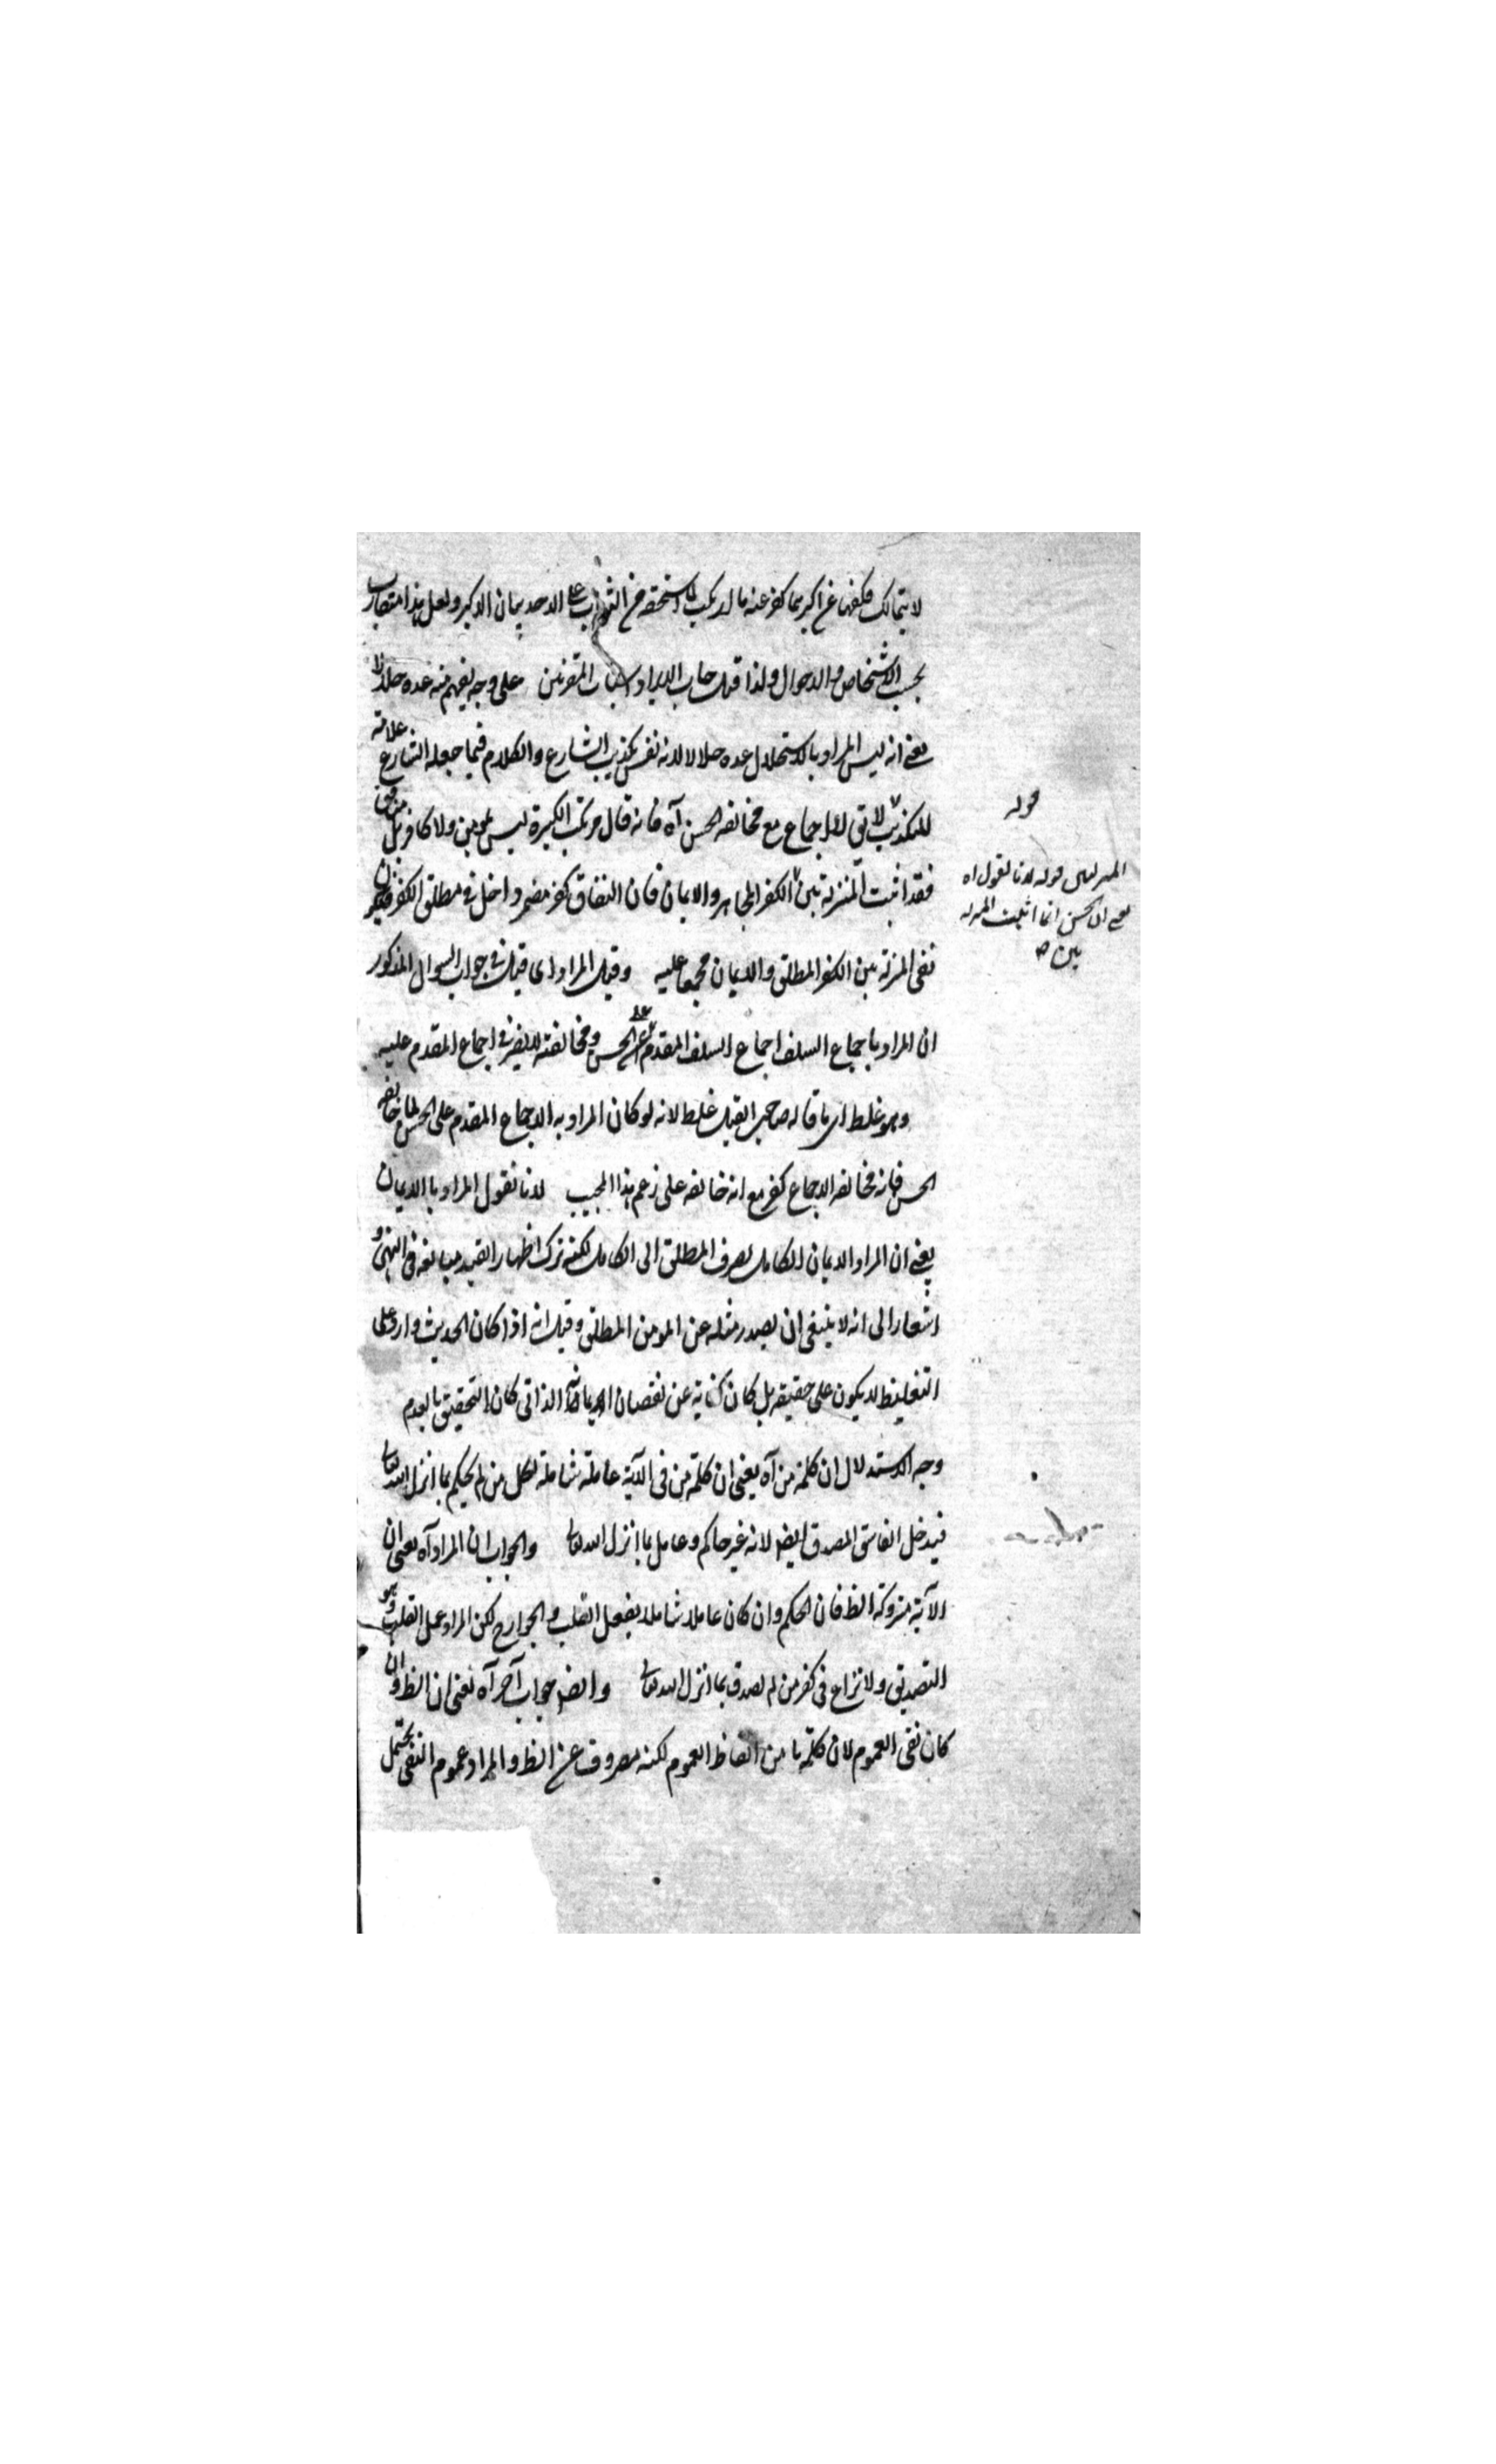 لا يتمالك فكفها عن اكبرهما كفر عنه ما ارتكب لما استحقه من الثواب على الاجتناب عن الاكبر ولعل هذا متفاوت
بحسب الاشخاص والاحوال ولذا قيل حسنات الابرار سيئات المقربين على وجه يفهم منه عده حلالا
يعنى انه ليس المراد بالاستحلال عده حلالا لانه نفس تكذيب الشارع والكلام فيما جعله الشارع علامة
للتكذيب لا تى للاجماع مع مخالفه الحسن آه فانه قال مرتكب الكبيرة ليس بمؤمن ولا كافر بل منافق
فقد اثبت المنزلة بين الكفر المجاهر والايمان فان النفاق كفر مضمر داخل فى مطلق الكفر فيكون
نفى المنزلة بين الكفر المطلق والايمان مجمعا عليه وقيل المراد اى قيل فى جواب السوال المذكور
ان المراد باجماع السلف اجماع السلف المقدم على الحسن ومخالفته لا يضر فى اجماع المقدم عليه
وهو غلط اى ما قاله صاحب القيل غلط لانه لو كان المراد به الاجماع المقدم على الحسن لما خالفه
الحسن فانه مخالفه الاجماع كفر مع انه خالفه على زعم هذا المجيب لانا نقول المراد بالايمان
يعنى ان المراد الايمان الكامل بصرف المطلق الى الكامل لكنه ترك اظهار القيد مبالغه فى النهى و
اشعارا الى انه لا ينبغى ان يصدر مثله عن المومن المطلق وقيل انه اذا كان الحديث واردا على
التغليظ لا يكون على حقيقه بل كان كناية عن نقصان الايمان الذاتى كان التحقيق بالعدم
وجه الاستدلال ان كلمة من آه يعنى ان كلمة من فى الآية عامله شاملة لكل من لم يحكم بما انزل الله تعالى
فيدخل الفاسق المصدق ايضا لانه غير حاكم وعامل بما انزل الله تعالى والجواب ان المراد آه يعنى ان
الآية متروكة الظ فان الحكم وان كان عاما شاملا بفعل القلب والجوارح لكن المراد عمل القلب وهو
التصديق ولا نزاع فى كفر من لم يصدق بما انزل الله تعالى وايضا جواب آخر آه يعنى ان الظ وان
كان نفى العموم لان كلمة ما من الفاظ العموم لكنه مصروف عن الظ والمراد عموم النفى يحتمل
قوله
قوله لانا نقول اه
يعنى ان الحسن انما اثبت المنزله
بين